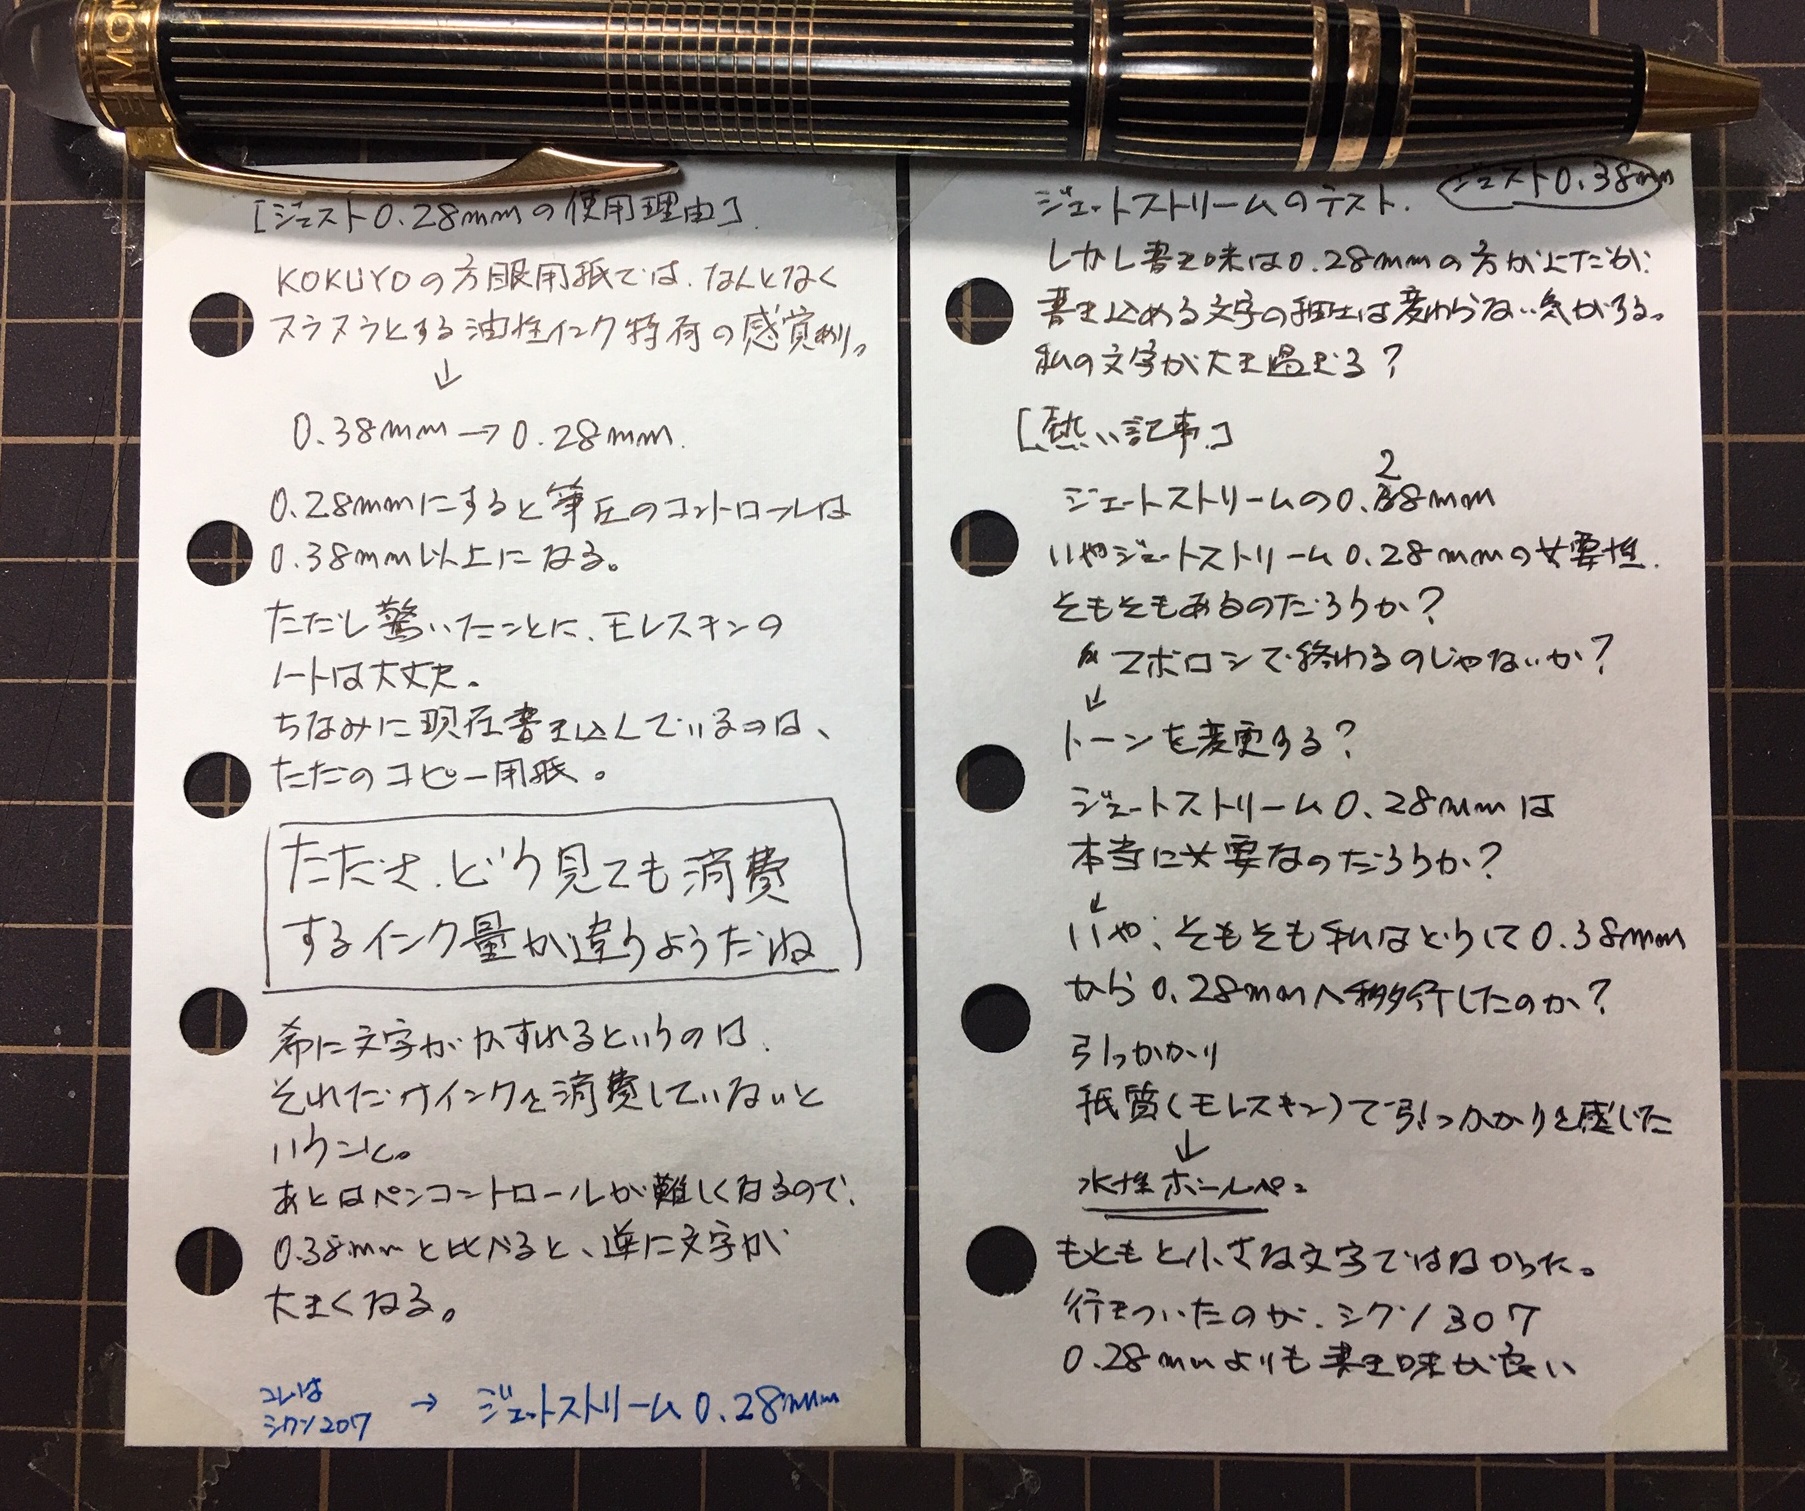 [ジェスト0.28mmの使用理由]
KOKUYOの方眼用紙では、なんとなく
スラスラとする油性インク特有の感覚あり。
↓
0.38mm→0.28mm.
0.28mmにすると筆圧のコントロールは
0.38mm以上になる。
ただし驚いたことに、モレスキンの
ノートは大丈夫。
ちなみに現在書き込んでいるのは、
ただのコピー用紙。
たださ、どう見ても消費
するインク量が違うようだね
希に文字がかすれるというのは、
それだけインクを消費していないと
いうこと。
あとはペンコントロールが難しくなるので、
0.38mmと比べると、逆に文字が
大きくなる。
コレは
シグノ207
→ ジェットストリーム0.28mm
ジェットストリームのテスト.
ジェスト0.38mm
しかし書き味は0.28mmの方が上だが、
書き込める文字の
は変わらない気がする。
私の文字が大き過ぎる?
[熱い記事]
ジェットストリームの0.28mm
いやジェットストリーム0.28mmの必要性.
そもそもあるのだろうか?
マボロシで終わるのじゃないか?
↓
トーンを変更する?
ジェットストリーム0.28mmは
本当に必要なのだろうか?
↓
いや、そもそも私はどうして0.38mm
から0.28mmへ移行したのか?
引っかかり
紙質(モレスキン)で引っかかりを感じた
↓
水性ボールペン
もともと小さな文字ではなかった。
行きついたのが、シグノ307
0.28mmよりも書き味が良い